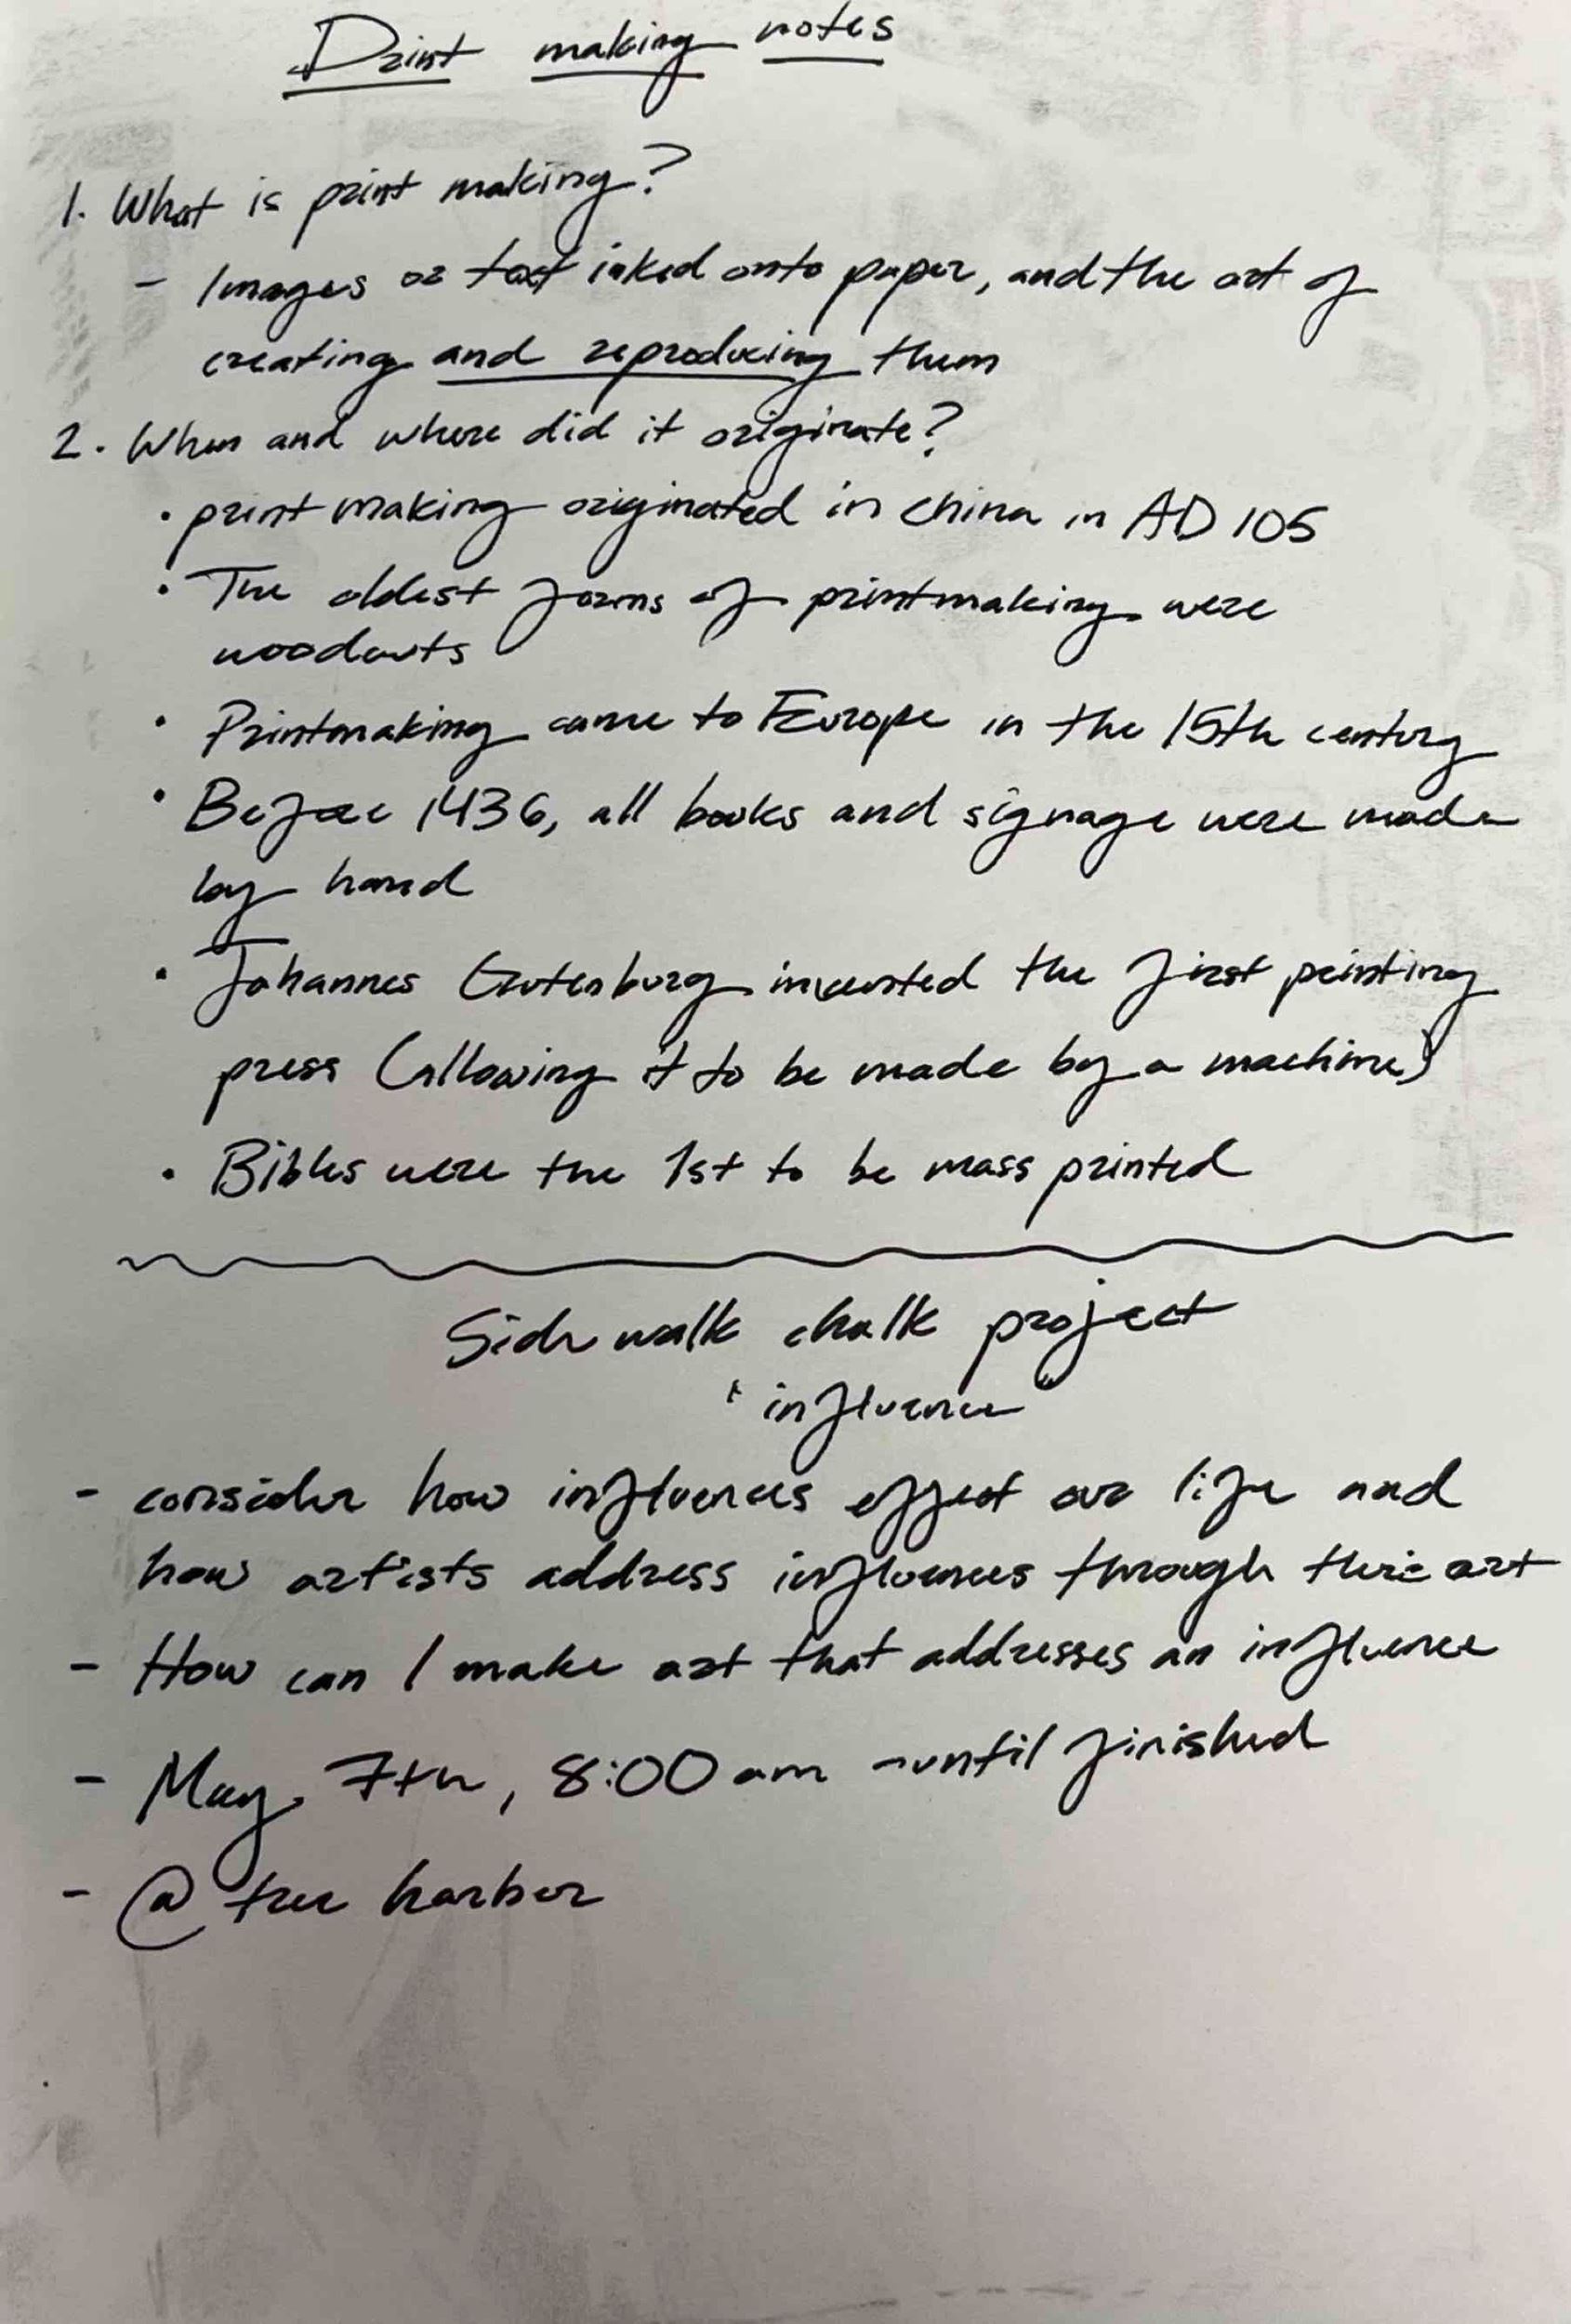 Print making notes
1. What is print making?
- Images or text inked onto paper, and the art of
creating and reproducing them
2. When and where did it originate?
• print making originated in china in AD 105
• The oldest forms of printmaking were
woodcuts
• Printmaking came to Europe in the 15th century
• Before 1436, all books and signage were made
by hand
• Johannes Gutenburg invented the first printing
press (allowing it to be made by a machine)
• Bibles were the 1st to be mass printed
Side walk chalk project
"influence"
- consider how influences effect our life and
how artists address influences through their art
- How can I make art that addresses an influence
- May 7th, 8:00 am - until finished
- @ tree harbor